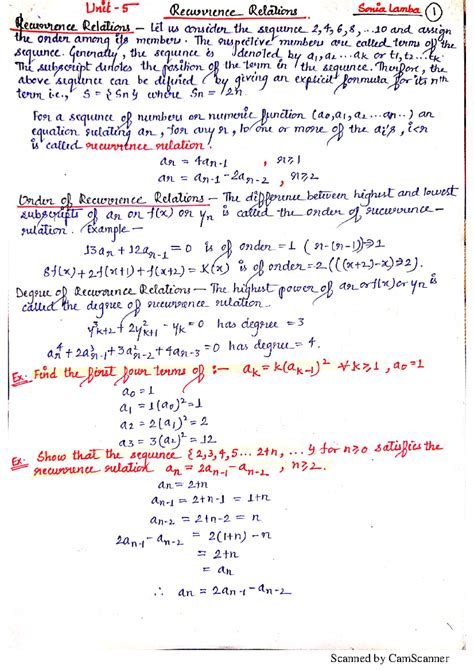 Unit-5 Recurrence Relations Sonia Lamba 1
Recurrence Relations — Let us consider the sequence 2,4,6,8,...10 and assign
the order among its members. The respective members are called terms of the
sequence. Generally, the sequence is denoted by a1,a2...ak or t1,t2...tk.
The subscript denotes the position of the term in the sequence. Therefore, the
above sequence can be defined by giving an explicit formula for its nth
term i.e., S = {Sn} where Sn = 2n.
For a sequence of numbers or numeric function (a0,a1,a2...an..) an
equation relating an, for any n, to one or more of the ai's, i<n
is called recurrence relation.
an = 4an-1 , n≥1
an = an-1 - 2an-2 , n≥2
Order of Recurrence Relations — The difference between highest and lowest
subscripts of an or f(x) or yn is called the order of recurrence-
relation. Example —
13an + 12an-1 = 0 is of order = 1 (n-(n-1)⇒1)
8f(x) + 2f(x+1) + f(x+2) = K(x) is of order = 2 (((x+2)-x)⇒2).
Degree of Recurrence Relations — The highest power of an or f(x) or yn is
called the degree of recurrence relation.
y³k+2 + 2y²k+1 - yk = 0 has degree = 3
an⁴ + 2a³n-1 + 3a²n-2 + 4an-3 = 0 has degree = 4.
Ex: Find the first four terms of :— ak = k(ak-1)² ∀ k≥1, a0=1
a0 = 1
a1 = 1(a0)² = 1
a2 = 2(a1)² = 2
a3 = 3(a2)² = 12
Ex: Show that the sequence {2,3,4,5... 2+n, ... } for n≥0 satisfies the
recurrence relation an = 2an-1 - an-2 , n≥2.
an = 2+n
an-1 = 2+n-1 = 1+n
an-2 = 2+n-2 = n
2an-1 - an-2 = 2(1+n) - n
= 2+n
= an
∴ an = 2an-1 - an-2
Scanned by CamScanner